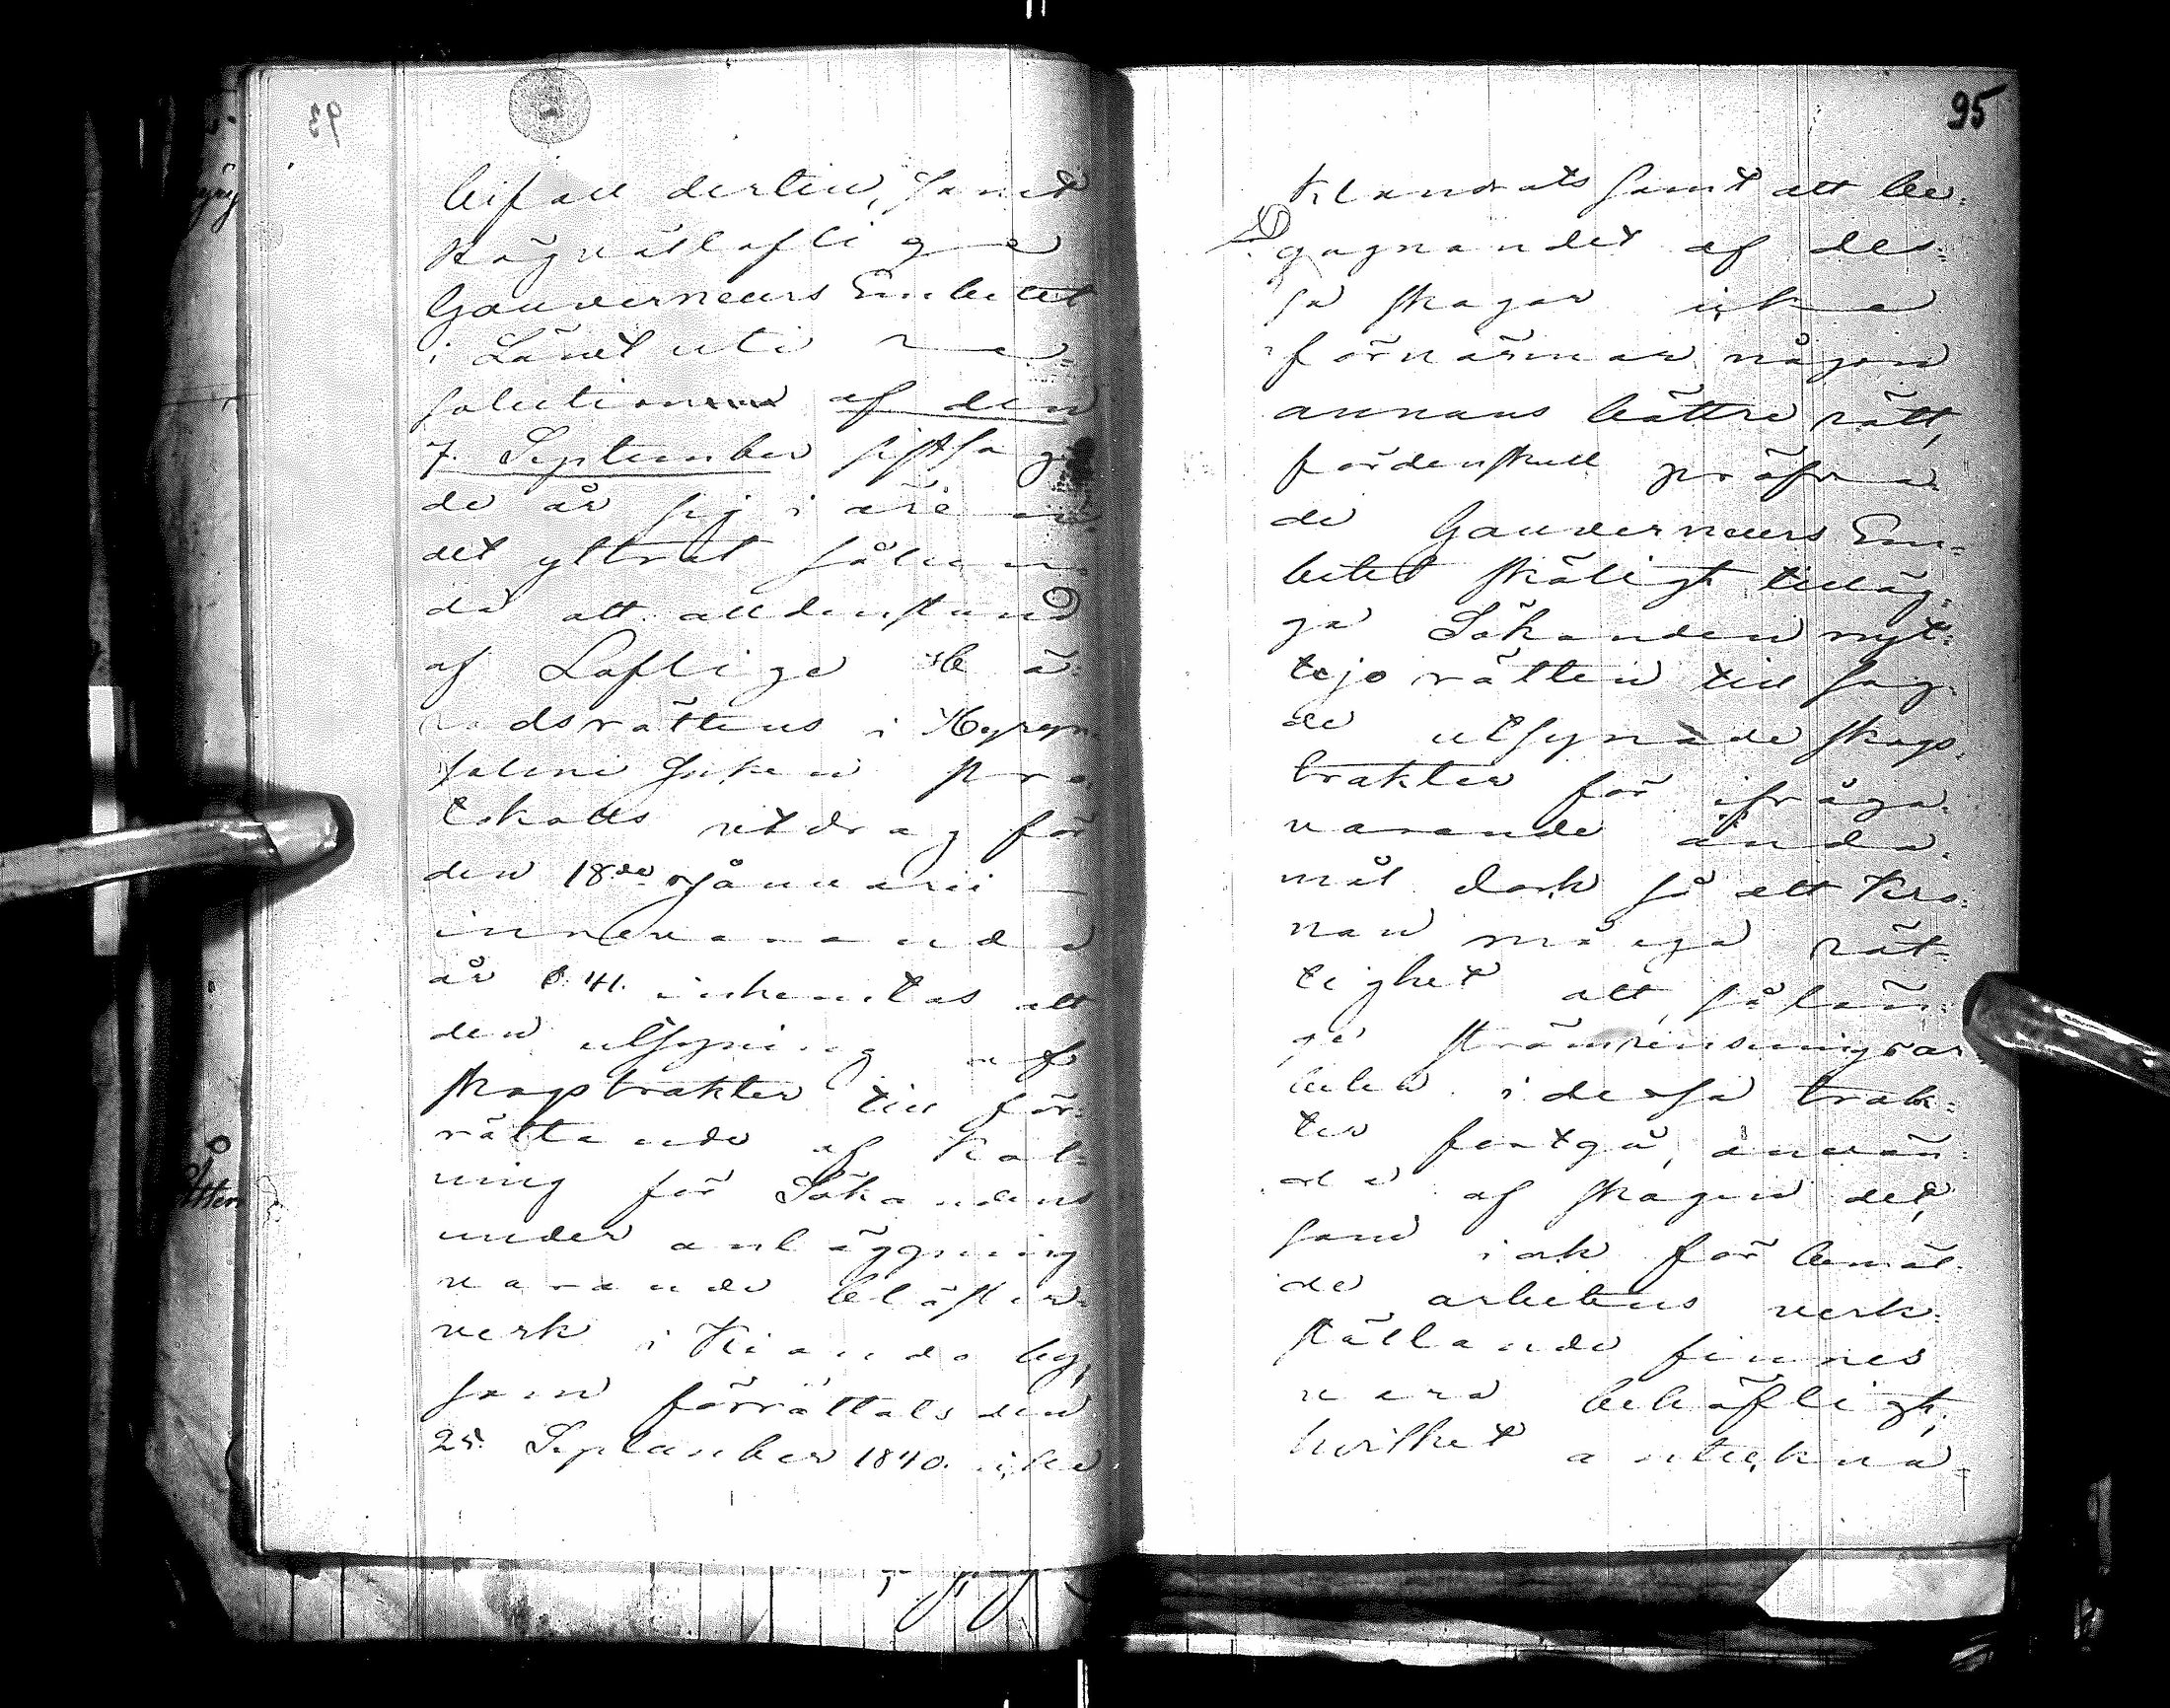 95
bifall dertill, samt
Högvälloflige
Gouverneurs Embetet
i Länet uti re-
solutionen af den
7. September sistsag
de år sig i äre en
det yttrat sålun
da att alldenstund
af Laflige Hä-
radsrättens i Hyryn
salmi Socken Pro
tokolls utdrag för
den 18de Januari
innevarande
år 841. inhemtas att
den utsyning af
skogstrakter till för-
rättande af Kol-
ning för Sökandens
under anläggning
varande blåster-
verk i Kianda by,
som förrättats den
25. September 1840. icke
klandrats samt att be-
gagnandet af des-
sa skogar icke
förnärmar någon
annans bättre rätt,
fördenskull pröfva-
de Gouverneurs Em-
betet skäligt tilläg-
ga Sökanden nyt-
tjo rätten till sag-
de utsynade skogs-
trakter för ifråga-
varande ända-
mål dock så att Kro-
nan må ega rät-
tighet att, så län-
ge strömrensningsar
beten i dessa trak-
ter fortgå, använ-
da af skogen det,
som ock för bemäl-
de arbetens verk-
ställande finnes
vara behöfligt,
hvilket anteckna-